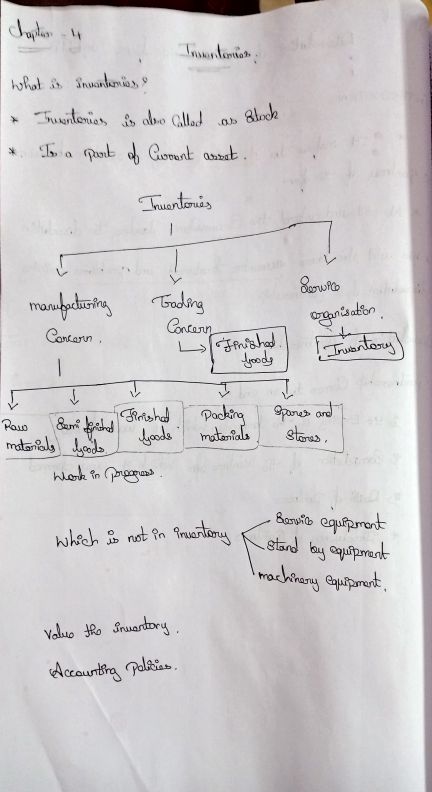 Chapter - 4
Inventories.
What is inventories?
* Inventories is also called as Stock
* Is a part of Current asset.
Inventories
manufacturing Concern.
Trading Concern
Finished goods
Service organisation.
Inventory
Raw materials
Semi finished goods
Finished goods
Packing materials
Spares and Stores.
Work in progress.
Which is not in inventory
Service equipment
Stand by equipment
machinery equipment.
Value the inventory.
Accounting Policies.